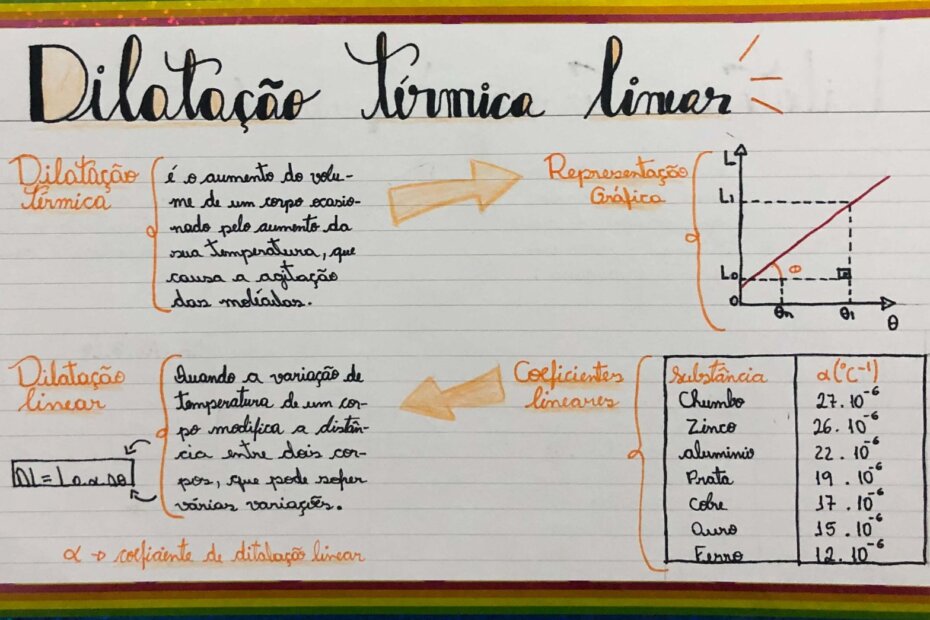 Dilatação térmica linear
Dilatação
térmica
é o aumento do volu-
me de um corpo ocasio-
nado pelo aumento da
sua temperatura, que
causa a agitação
das moléculas.
Representação
Gráfica
L
L1
L0
0
Φ
θn
θ1
θ
Dilatação
linear
Quando a variação de
temperatura de um cor-
po modifica a distân-
cia entre dois cor-
pos, que pode sofrer
várias variações.
Δl = L0.α.Δθ
α → coeficiente de ditalação linear
Coeficientes
lineares
Substância α(°C⁻¹)
Chumbo 27.10⁻⁶
Zinco 26.10⁻⁶
alumínio 22.10⁻⁶
Prata 19.10⁻⁶
Cobre 17.10⁻⁶
Ouro 15.10⁻⁶
Ferro 12.10⁻⁶